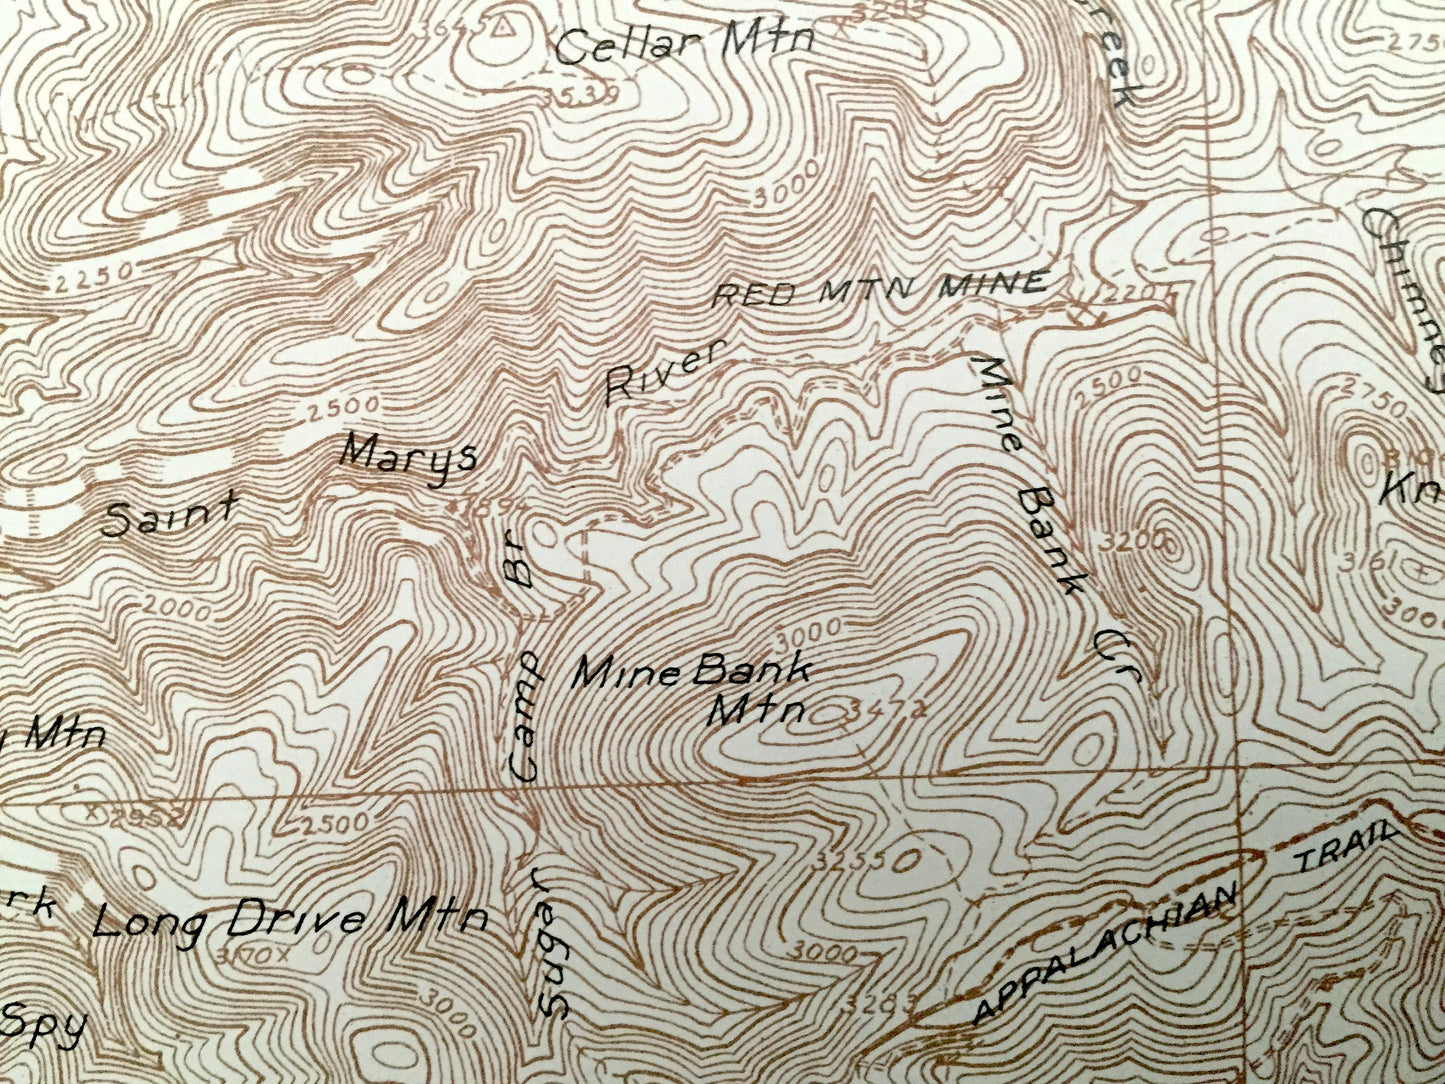 3645
Cellar Mtn
3293
Creek
2750
3539
3000
Chimney
2250
RED MTN MINE
2207
River
2500
Marys
Mine Bank Cr
2500
2750
Saint
1894
Kn
3200
3161
3000
2000
Sugar Camp Br
3000
Mine Bank
Mtn
3472
Mtn
2952
2500
3255
APPALACHIAN TRAIL
rk
Long Drive Mtn
3170
3000
3000
3283
Spy